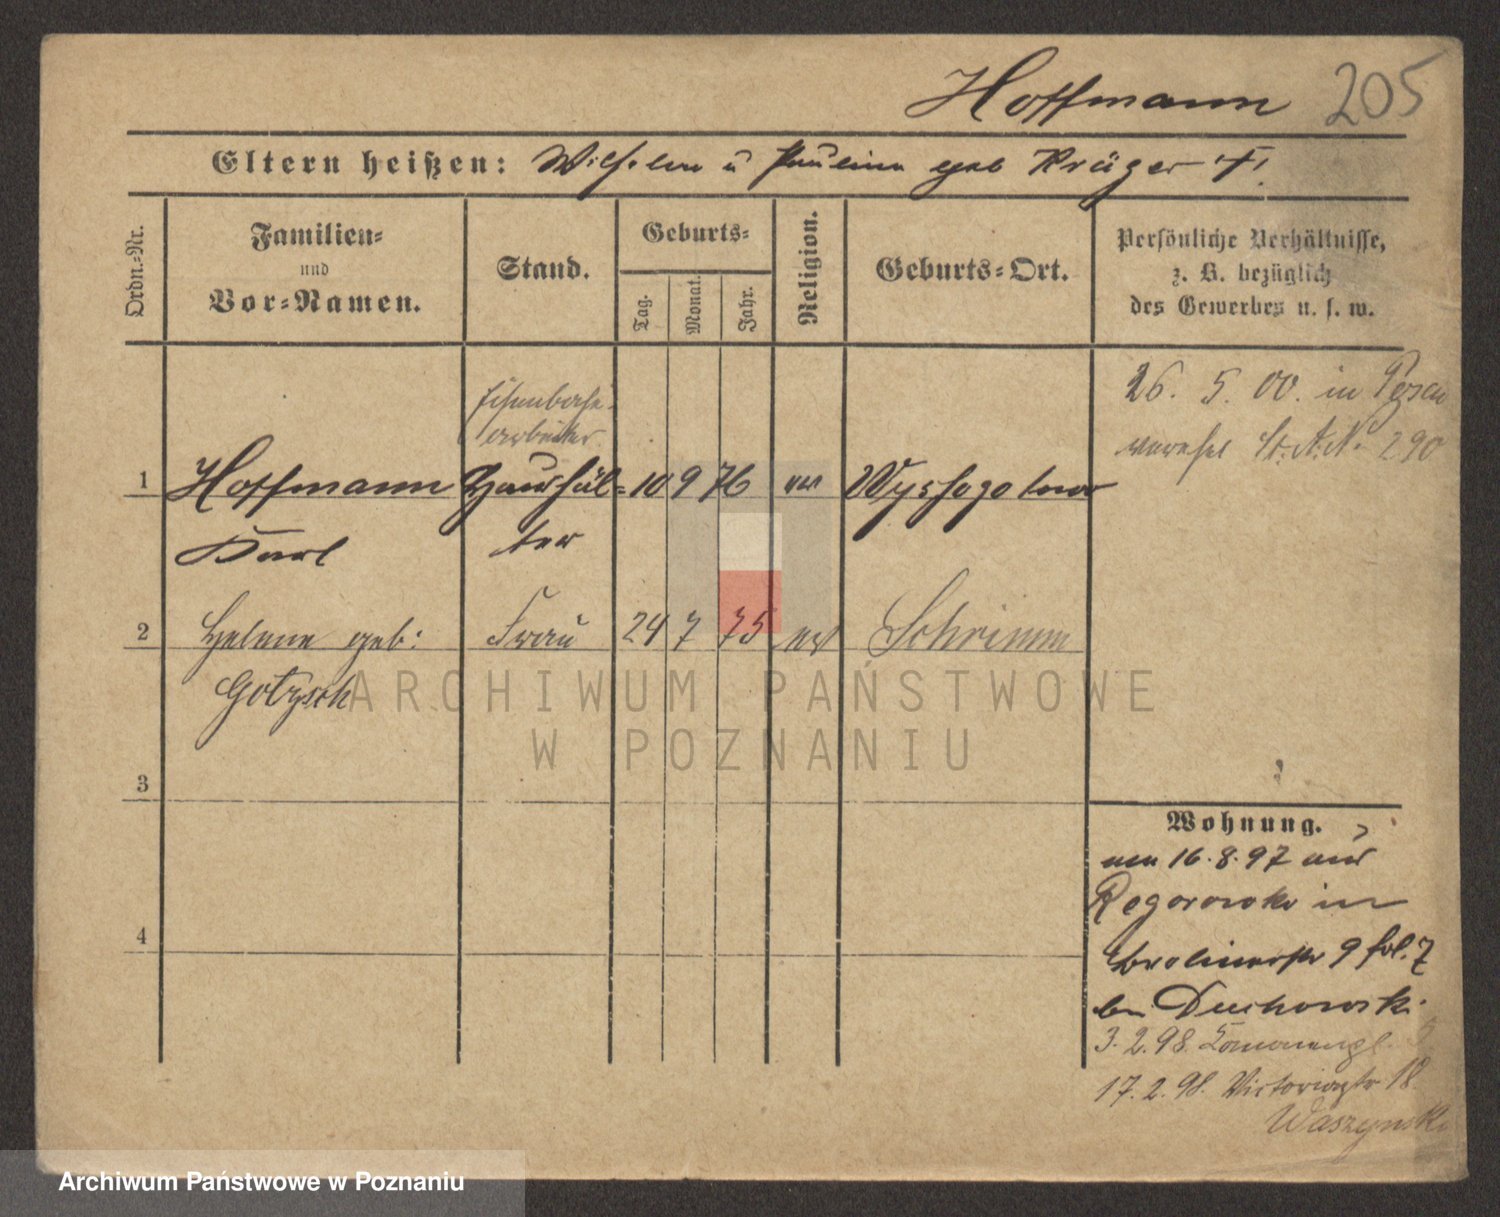 Hoffmann 205
Eltern heißen: Wilhelm u Paulina geb Krüger
Ordn.-Nr.
Familien-
und
Vor-Namen.
Stand.
Geburts-
Tag.
Monat.
Jahr.
Religion.
Geburts-Ort.
Persönliche Verhältnisse,
z. B. bezüglich
des Gewerbes u. s. w.
Eisenbahn-
arbeiter
26. 5. 00. in Posen
verehel St. A. N. 290
1 Hoffmann Haushäl- 10 9 76 ev Wyssogotowo
Karl ter
2 Helene geb: Frau 24 7 75 ev Schrimm
Gotzsch
3
4
Wohnung.
16.8.97 aus
in
9 fol. 7
bei Duchowski
3. 2. 98.
17. 2. 98. Victoriastr 18
Waszynski
ARCHIWUM PAŃSTWOWE
W POZNANIU
Archiwum Państwowe w Poznaniu